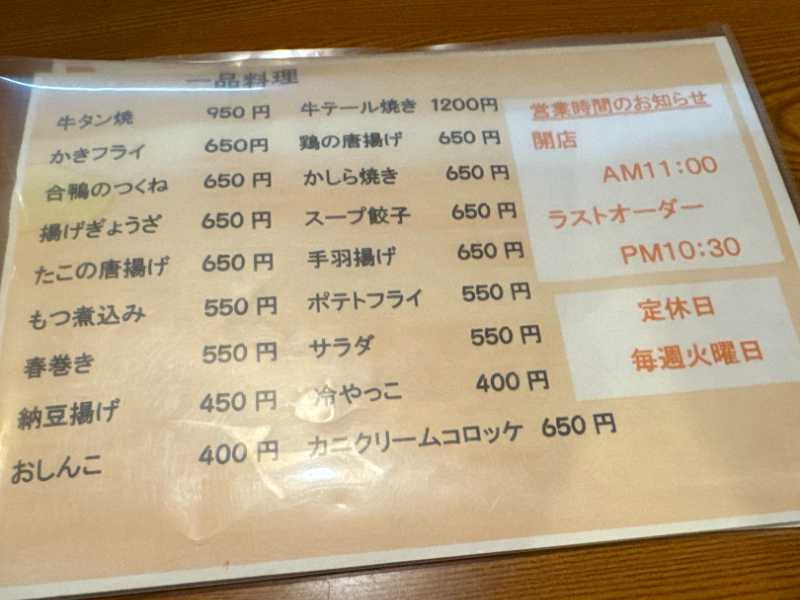 一品料理
牛タン焼 950円
かきフライ 650円
合鴨のつくね 650円
揚げぎょうざ 650円
たこの唐揚げ 650円
もつ煮込み 550円
春巻き 550円
納豆揚げ 450円
おしんこ 400円
牛テール焼き 1200円
鶏の唐揚げ 650円
かしら焼き 650円
スープ餃子 650円
手羽揚げ 650円
ポテトフライ 550円
サラダ 550円
冷やっこ 400円
カニクリームコロッケ 650円
営業時間のお知らせ
開店
AM11:00
ラストオーダー
PM10:30
定休日
毎週火曜日